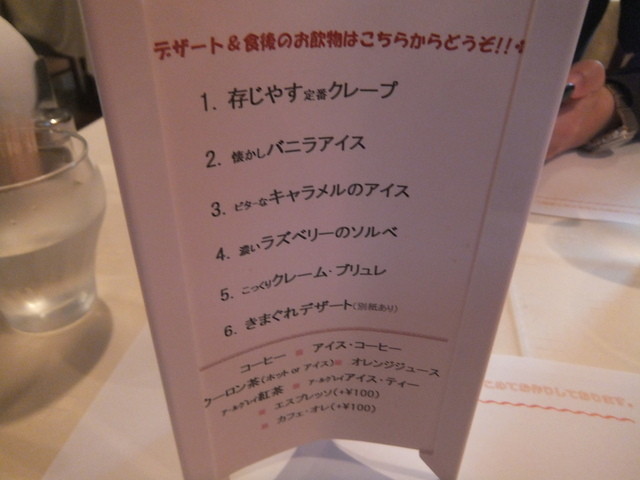 デザート＆食後のお飲物はこちらからどうぞ!!
1. 存じやす定番クレープ
2. 懐かしバニラアイス
3. ビターなキャラメルのアイス
4. 濃いラズベリーのソルベ
5. こっくりクレーム・ブリュレ
6. きまぐれデザート(別紙あり)
コーヒー ■ アイス・コーヒー
ウーロン茶(ホット or アイス) ■ オレンジジュース
アールグレイ紅茶 ■ アールグレイアイス・ティー
■ エスプレッソ(+¥100)
■ カフェ・オレ(+¥100)